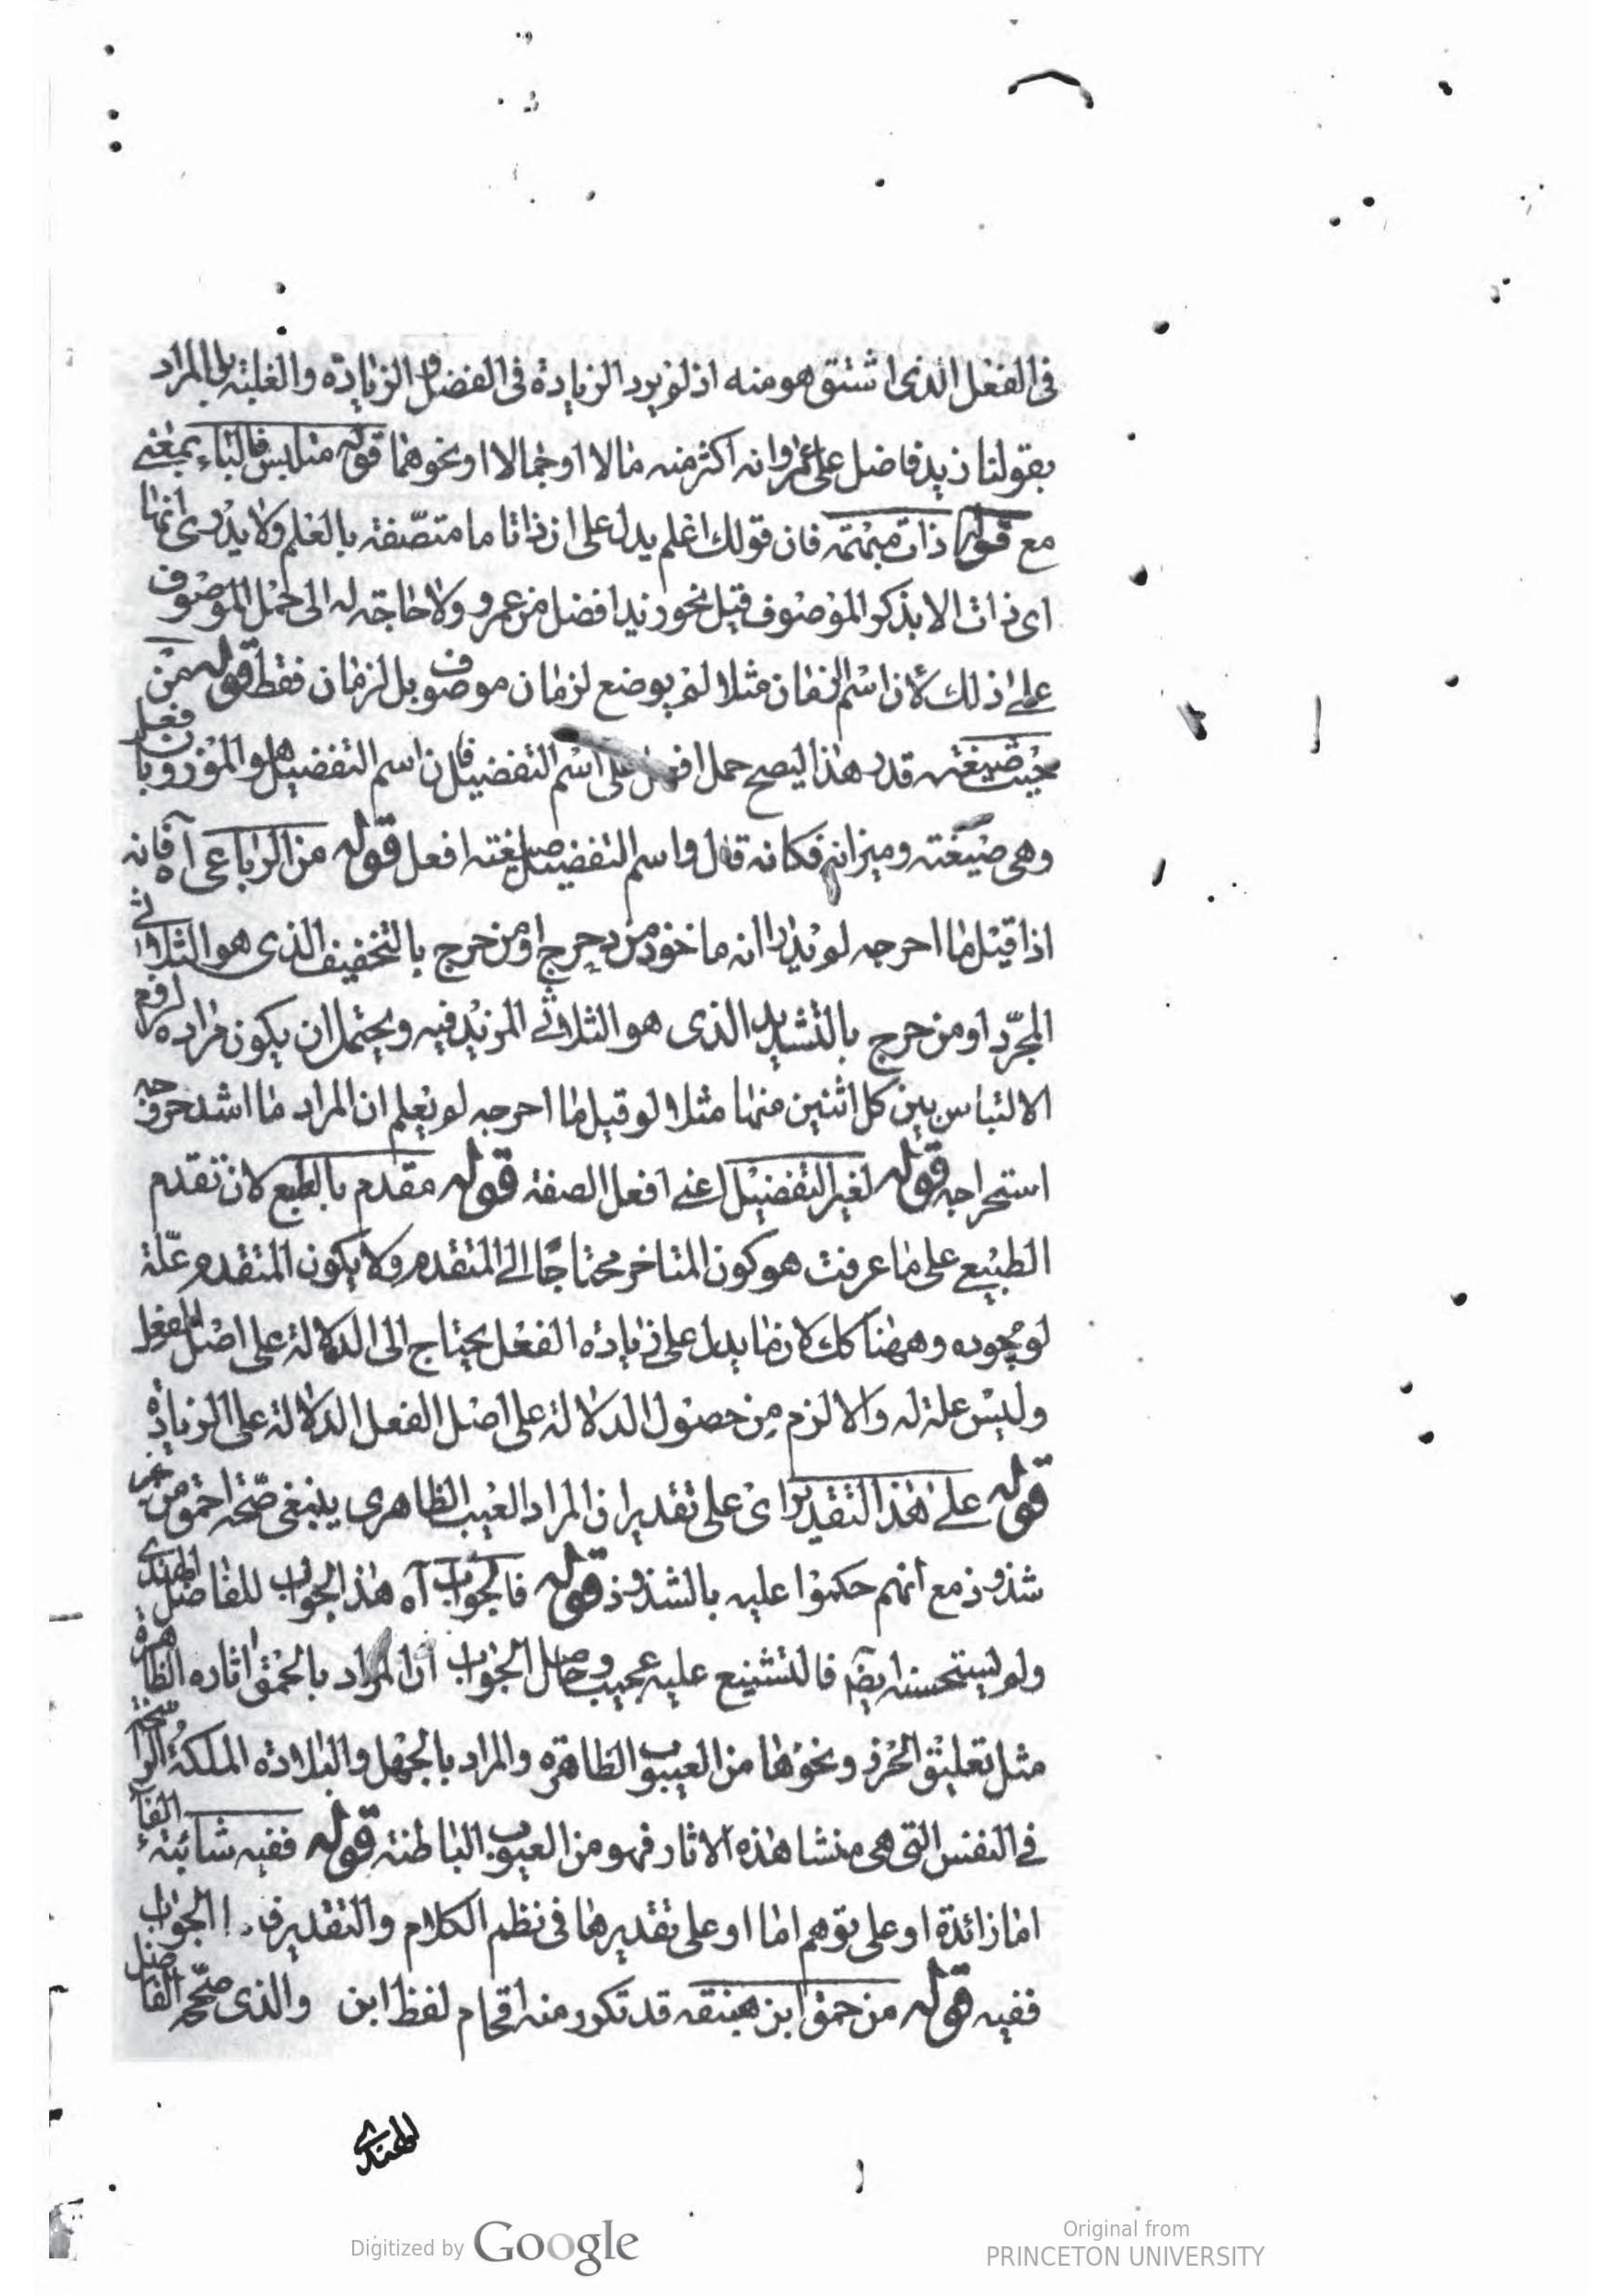 فى الفعل الذى اشتق هو منه اذ لم يرد الزيادة فى الفضل والزيادة والغلبة بل المراد
بقولنا زيد فاضل على عمرو انه اكثر منه مالا او جمالا او نحوهما قوله متلابس فالباء بمعنى
مع قوله ذات مبهمة فان قولك اعلم يدل على ان ذاتا ما متصفة بالعلم ولا يدرى انها
اى ذات الا بذكر الموصوف قبل نحو زيد افضل من عمرو ولا حاجة له الى حمل الموصوف
على ذلك لان اسم الزمان مثلا لم يوضع لزمان موصوف بل لزمان فقط قوله من
حيث صيغته قدر هذا ليصح حمل افعل على اسم التفضيل فان اسم التفضيل هو الموزون بافعل
وهى صيغته وميزانه فكانه قال واسم التفضيل صيغته افعل قوله من الرباعى آه فانه
اذا قيل ما احرجه لم يدر انه ماخوذ من دحرج او من خرج بالتخفيف الذى هو الثلاثى
المجرّد او من خرج بالتشديد الذى هو الثلاثى المزيد فيه ويحتمل ان يكون مراده رفع
الالتباس بين كل اثنين منها مثلا لو قيل ما احرجه لم يعلم ان المراد ما اشد خروجه
استخراجه قوله لغير التفضيل اعنى افعل الصفة قوله مقدم بالطبع لان تقدم
الطبيع على ما عرفت هو كون المتاخر محتاجًا الى المتقدم ولا يكون المتقدم علّة
لوجوده وههنا كك لان ما يدل على زيادة الفعل يحتاج الى الدلالة على اصل الفعل
وليس علة له والا لزم من حصول الدلالة على اصل الفعل الدلالة على الزيادة
قوله على هذا التقدير اى على تقدير ان المراد العيب الظاهرى ينبغى صحّة احمق من غير
شذوذ مع انهم حكموا عليه بالشذوذ قوله فالجواب آه هذا الجواب للفاضل الهندى
ولم يستحسنه ايضا فالتشنيع عليه عجيب وحاصل الجواب ان المراد بالحمق اثاره الظاهرة
مثل تعليق الخرز ونحوها من العيوب الظاهرة والمراد بالجهل والبلادة الملكة الراسخة
فى النفس التى هى منشا هذه الاثار فهو من العيوب الباطنة قوله ففيه شائبة الفاء
اما زائدة او على توهم اما او على تقديرها فى نظم الكلام والتقدير الجواب
ففيه قوله من حمق ابن هبنقه قد تكرر منه اقحام لفظ ابن والذى صحّحه الفاضل
الهندى
Digitized by Google
Original from
PRINCETON UNIVERSITY